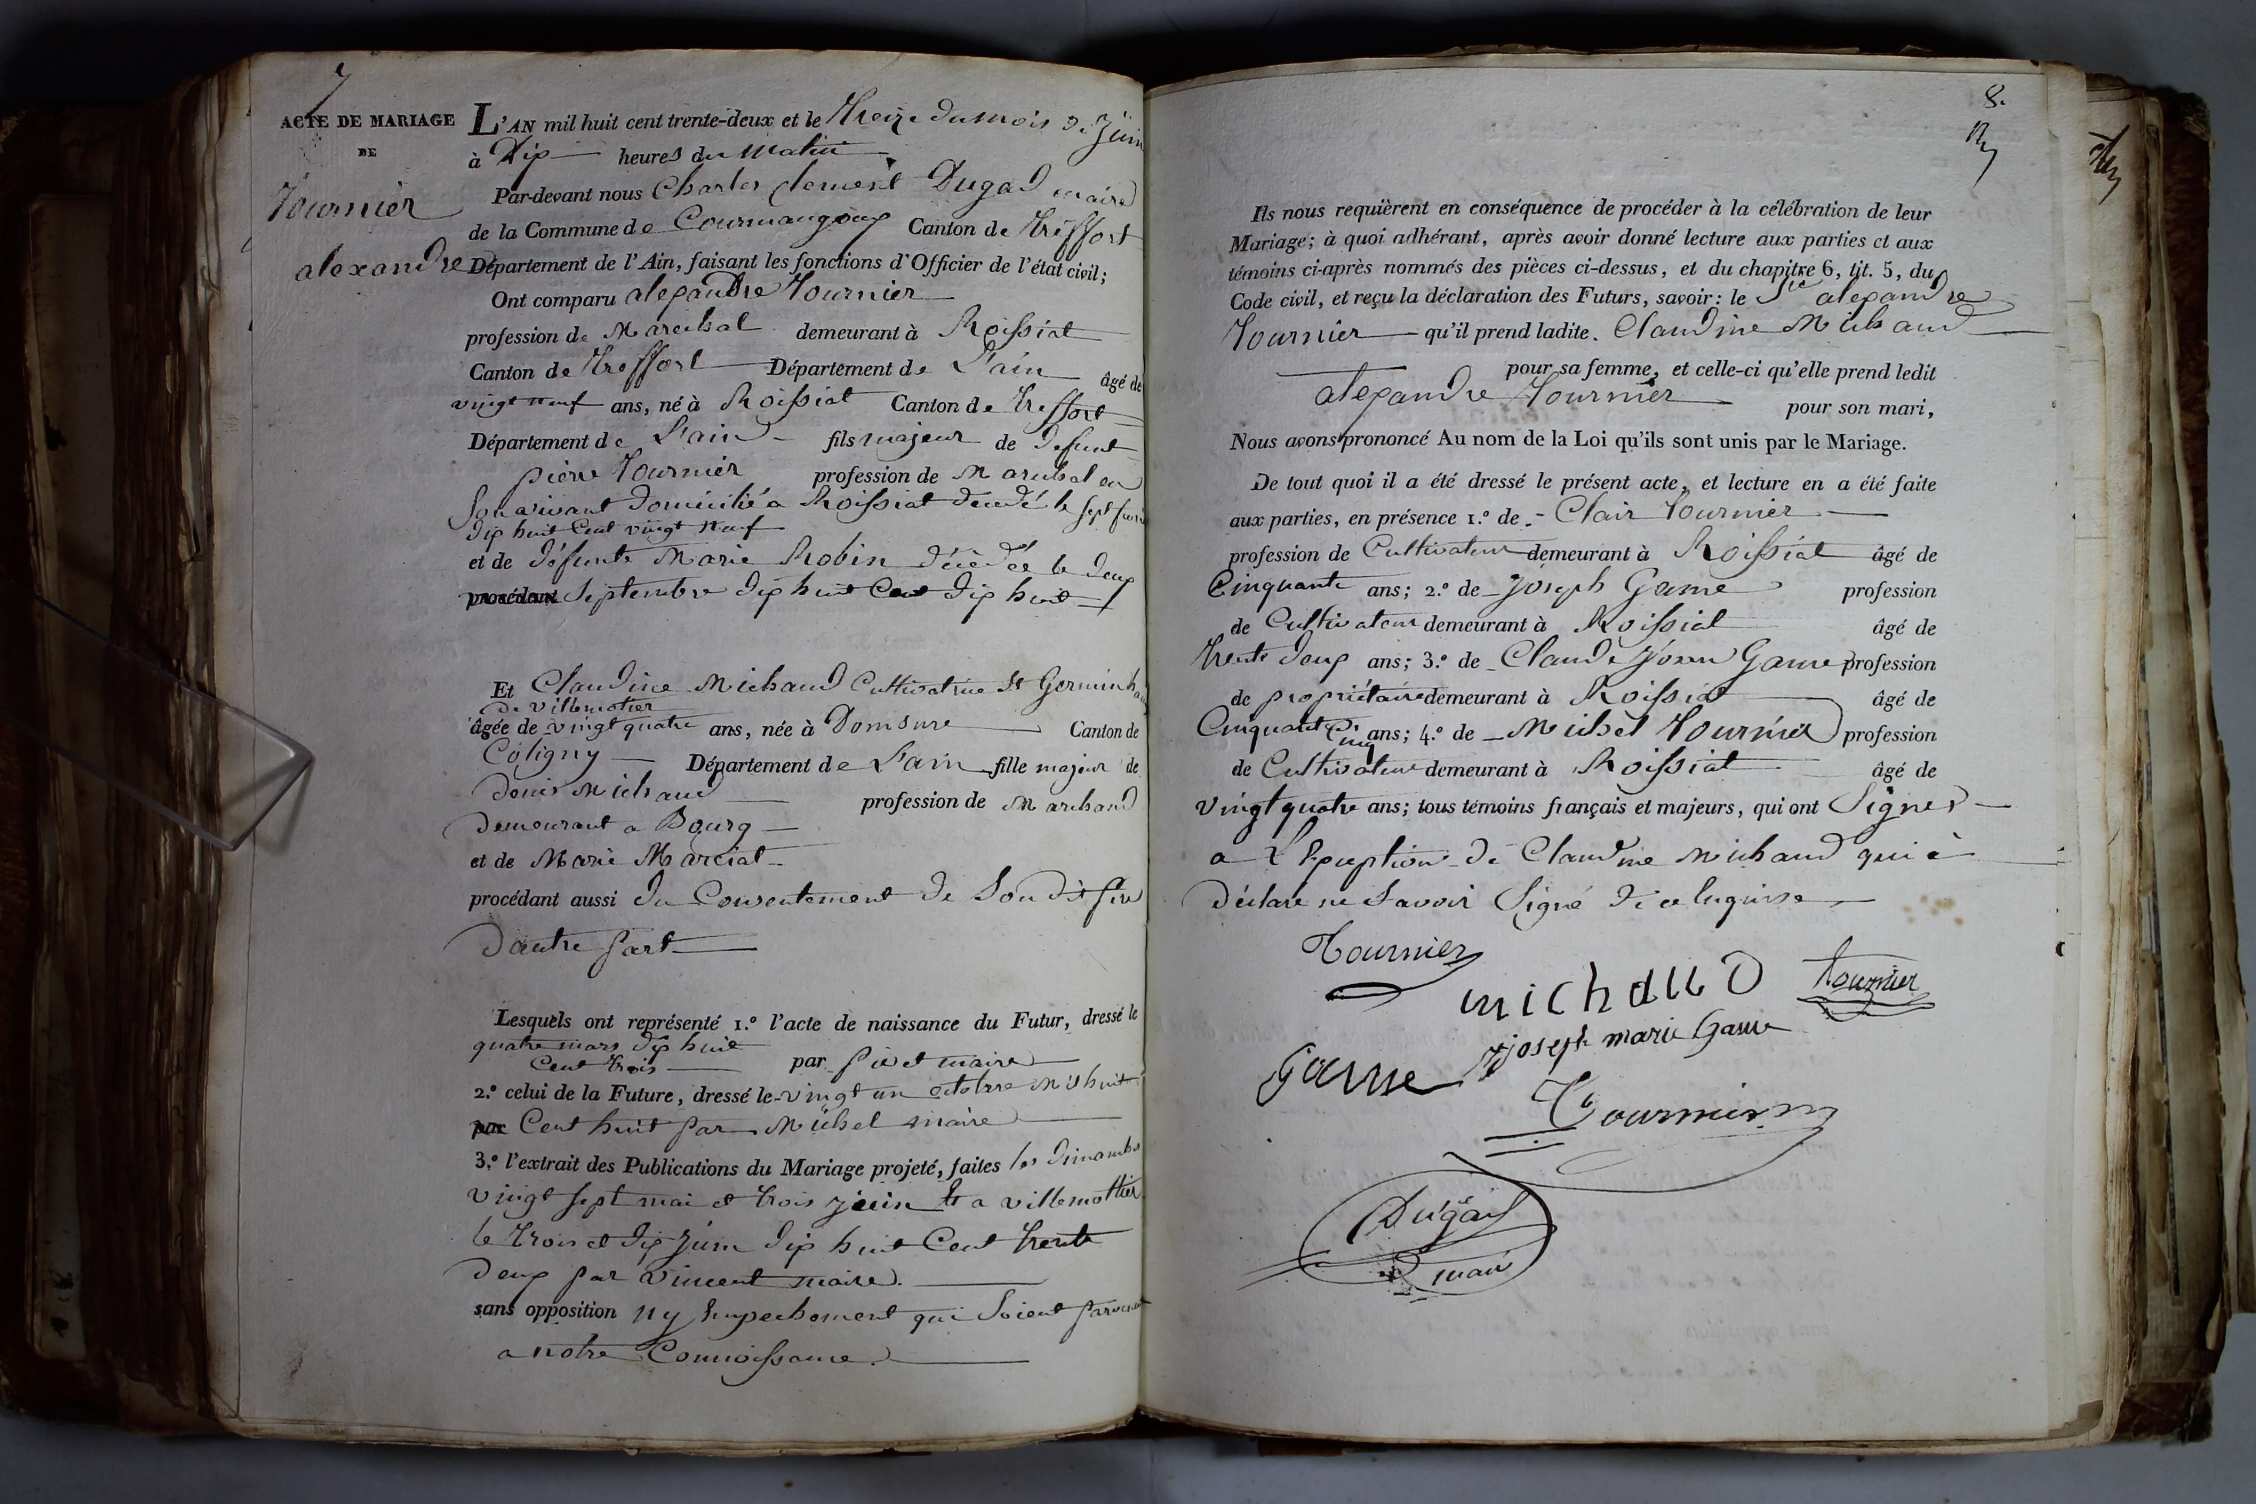 7
ACTE DE MARIAGE
DE
Tournier
alexandre
L'AN mil huit cent trente-deux et le treize du mois de juin
à Dix heures du matin
Par-devant nous Charles Clement Dugad maire
de la Commune de Courmangoux Canton de treffort
Département de l'Ain, faisant les fonctions d'Officier de l'état civil;
Ont comparu alexandre tournier
profession de Marechal demeurant à Roissiat
Canton de treffort Département de L'ain âgé de
vingt neuf ans, né à Roissiat Canton de treffort
Département de L'ain fils majeur de defunt
pierre tournier profession de Marechal en
Son vivant domicilié a Roissiat décédé le sept
dix huit Cent vingt neuf
et de défunte Marie Robin décédée le deux
procédant Septembre dix huit Cent dix huit
Et Claudine Michaud Cultivatrice St Germin
de villemotier
âgée de vingt quatre ans, née à Domsure Canton de
Coligny Département de L'ain fille majeur de
denis Michaud profession de Marchand
demeurant a Bourg
et de Marie Marciat
procédant aussi du Consentement de Son dit père
d'autre part
Lesquels ont représenté 1.º l'acte de naissance du Futur, dressé le
quatre mars dix huit
Cent trois par maire
2.º celui de la Future, dressé le vingt un octobre mil huit
par Cent huit par Michel maire
3.º l'extrait des Publications du Mariage projeté, faites les dimanches
vingt sept mai et trois juin a villemottier
le trois et dix juin dix huit Cent trente
deux par vincent maire.
sans opposition ny Empechement qui Soient parvenu
a notre Connoissance.
8.
Ils nous requièrent en conséquence de procéder à la célébration de leur
Mariage; à quoi adhérant, après avoir donné lecture aux parties et aux
témoins ci-après nommés des pièces ci-dessus, et du chapitre 6, tit. 5, du
Code civil, et reçu la déclaration des Futurs, savoir: le Sr alexandre
tournier qu'il prend ladite Claudine Michaud
pour sa femme, et celle-ci qu'elle prend ledit
alexandre tournier pour son mari,
Nous avons prononcé Au nom de la Loi qu'ils sont unis par le Mariage.
De tout quoi il a été dressé le présent acte, et lecture en a été faite
aux parties, en présence 1.º de Clair tournier
profession de Cultivateur demeurant à Roissiat âgé de
Cinquante ans; 2.º de joseph Game profession
de Cultivateur demeurant à Roissiat âgé de
trente deux ans; 3.º de Claude Game profession
de propriétaire demeurant à Roissiat âgé de
Cinquante Cinq ans; 4.º de Michel tournier profession
de Cultivateur demeurant à Roissiat âgé de
vingt quatre ans; tous témoins français et majeurs, qui ont Signer
a L'exception de Claudine Michaud qui à
déclaré ne Savoir Signé de ce Enquise
Tournier
michauD
tournier
joseph marie Game
Game
Tournier
Dugad
maire